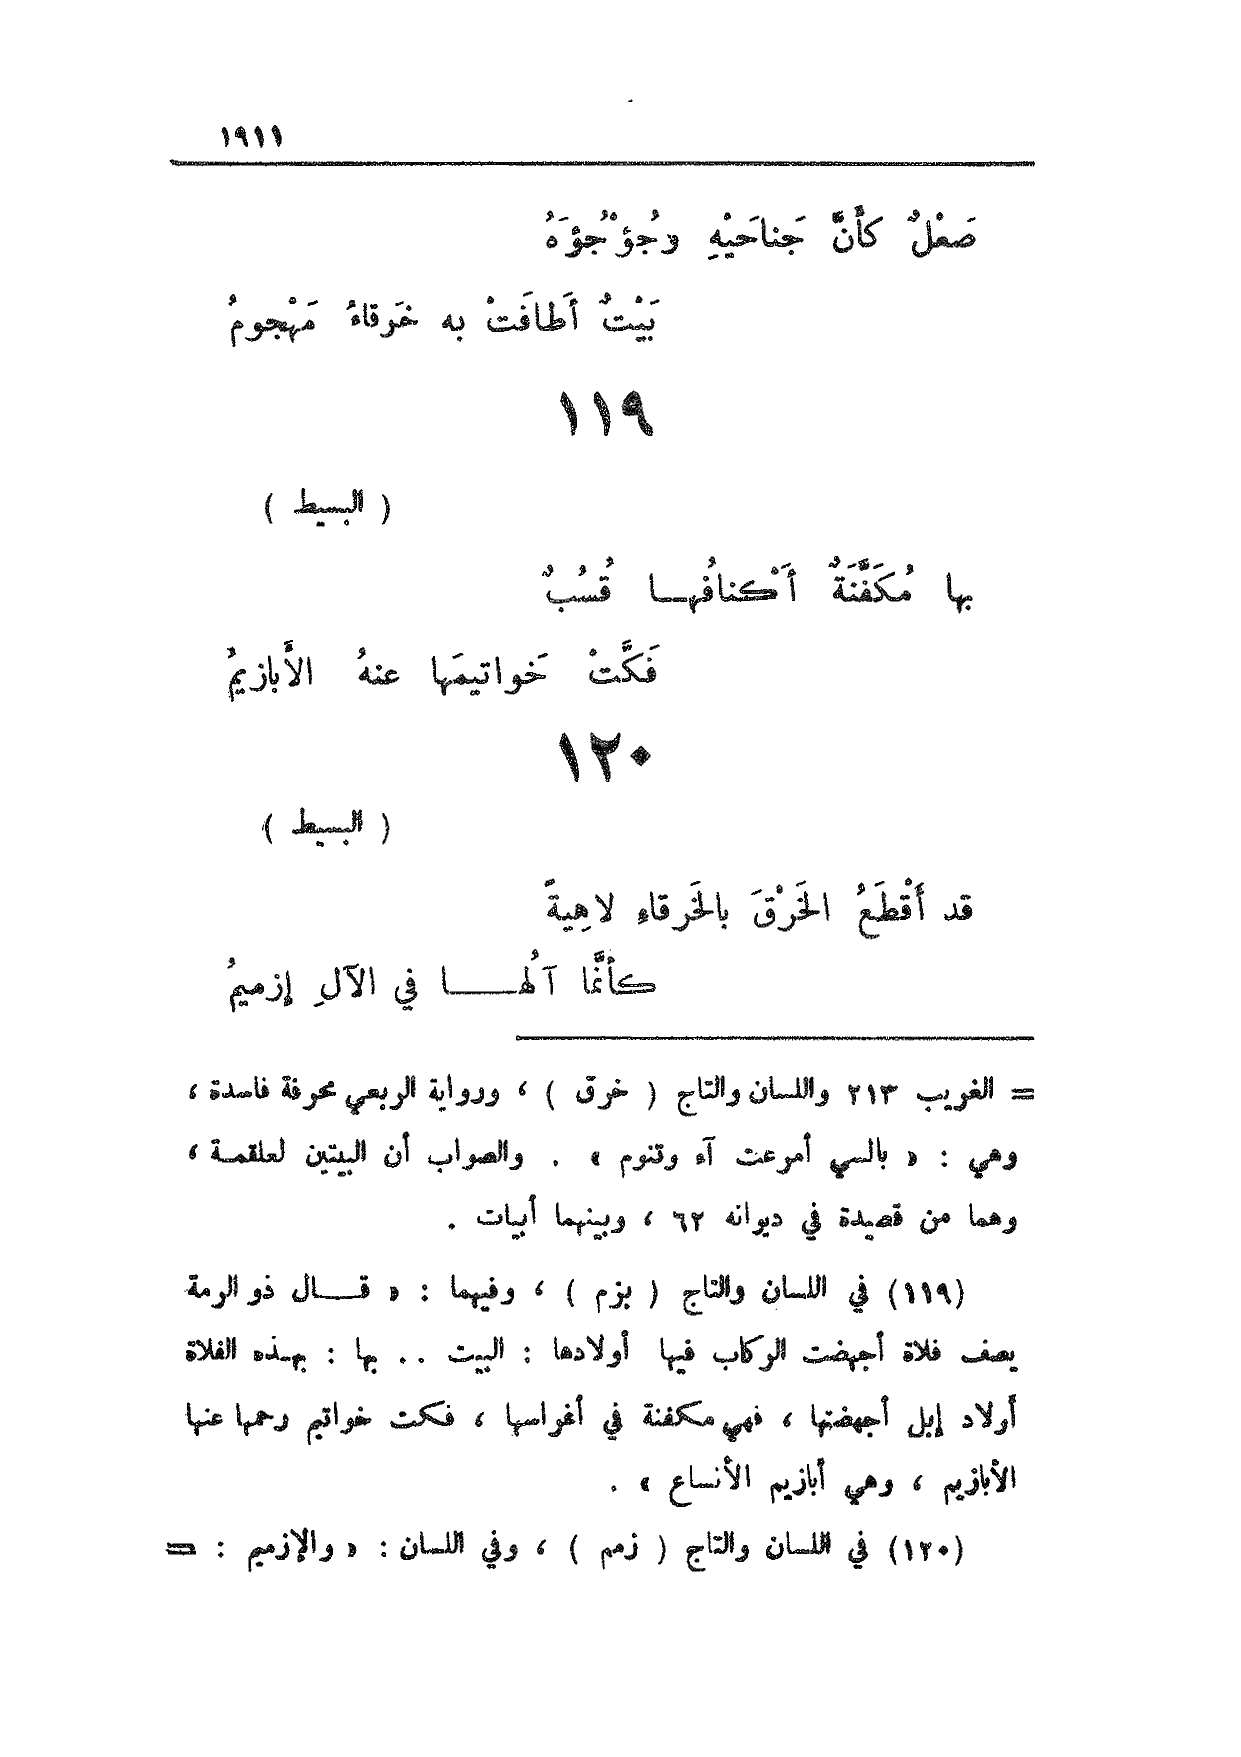 ١٩١١
صَعْلٌ كأَنَّ جَناحَيْهِ وجُؤْجُؤَهُ
بَيْتٌ أَطافَتْ به خَرقاءُ مَهْجومُ
١١٩
( البسيط )
بها مُكَفَّنَةٌ أَكْنافُهـا قُسُبٌ
فَكَّتْ خَواتيمَها عنهُ الأَبازيمُ
١٢٠
( البسيط )
قد أَقْطَعُ الخَرْقَ بالخَرقاءِ لاهِيةً
كأنَّما آلُهـــا في الآلِ إزميمُ
= الغريب ٢١٣ واللسان والتاج ( خرق ) ، ورواية الربعي محرفة فاسدة ،
وهي : « بالسي أمرعت آء وتنوم » . والصواب أن البيتين لعلقمـة ،
وهما من قصيدة في ديوانه ٦٢ ، وبينهما أبيات .
(١١٩) في اللسان والتاج ( بزم ) ، وفيهما : « قـــال ذو الرمة
يصف فلاة أجهضت الركاب فيها أولادها : البيت .. بها : بهـذه الفلاة
أولاد إبل أجهضتها ، فهي مكفنة في أغراسها ، فكت خواتيم رحمها عنها
الأبازيم ، وهي أبازيم الأنساع » .
(١٢٠) في اللسان والتاج ( زمم ) ، وفي اللسان : « والإزميم : =